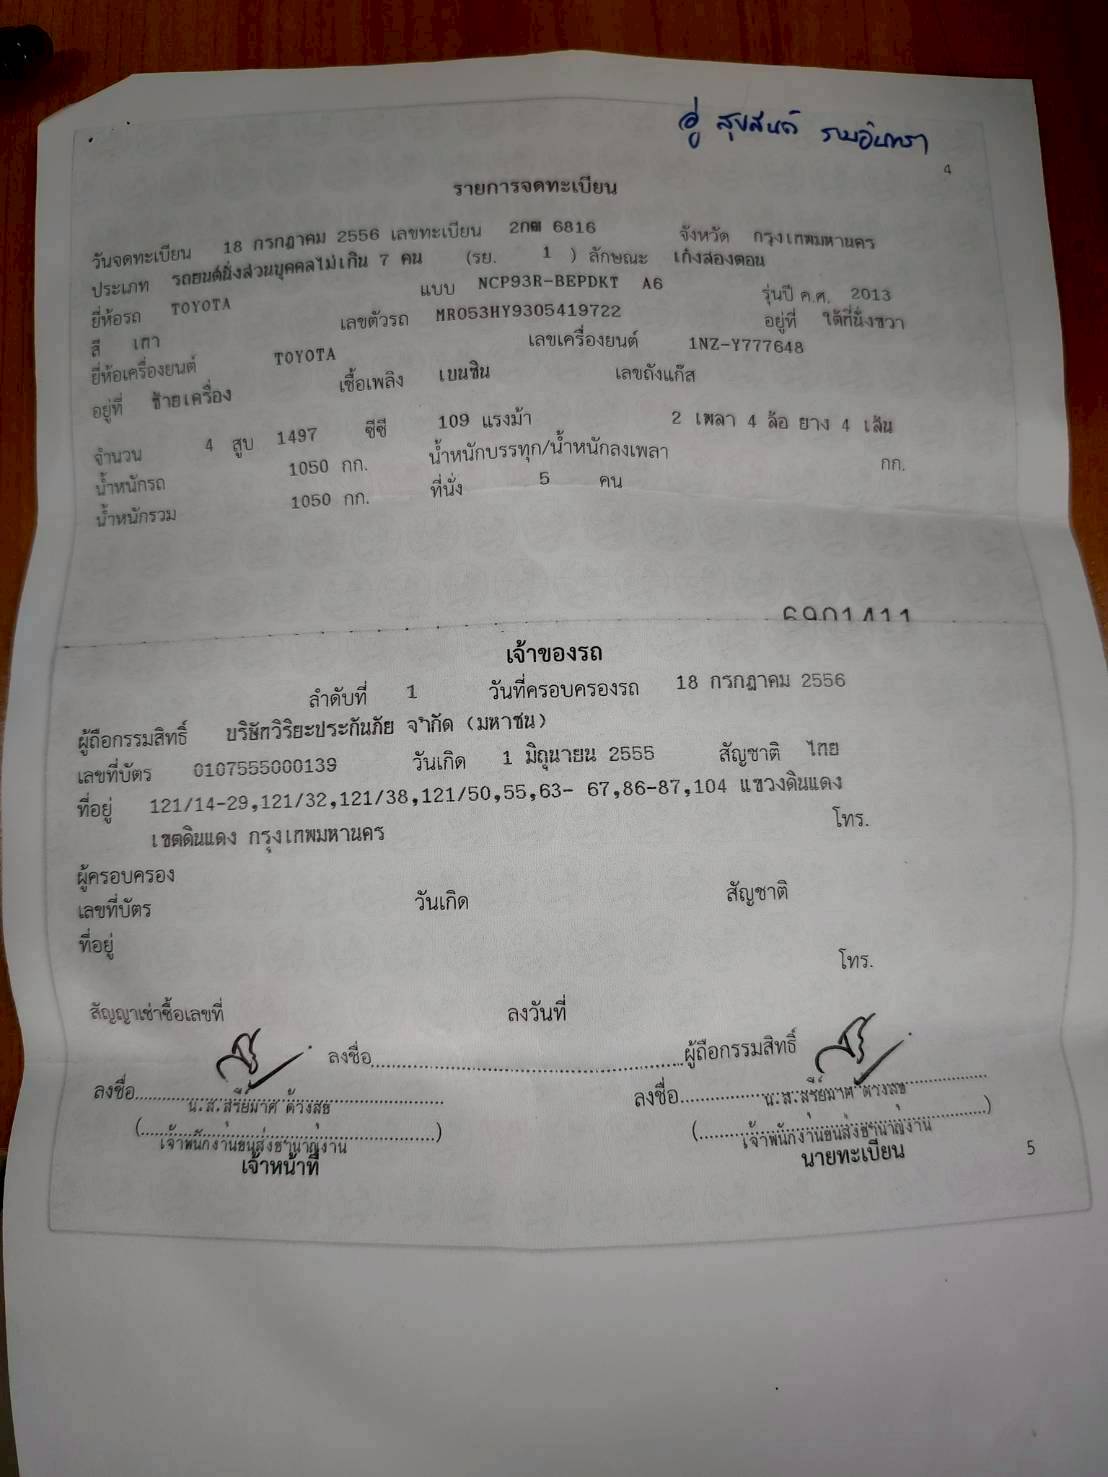 อู่ สุขสันต์ รามอินทรา
4
รายการจดทะเบียน
วันจดทะเบียน 18 กรกฎาคม 2556 เลขทะเบียน 2กฒ 6816 จังหวัด กรุงเทพมหานคร
ประเภท รถยนต์นั่งส่วนบุคคลไม่เกิน 7 คน (รย. 1 ) ลักษณะ เก๋งสองตอน
ยี่ห้อรถ TOYOTA แบบ NCP93R-BEPDKT A6 รุ่นปี ค.ศ. 2013
สี เทา เลขตัวรถ MR053HY9305419722 อยู่ที่ ใต้ที่นั่งขวา
ยี่ห้อเครื่องยนต์ TOYOTA เลขเครื่องยนต์ 1NZ-Y777648
อยู่ที่ ซ้ายเครื่อง เชื้อเพลิง เบนซิน เลขถังแก๊ส
จำนวน 4 สูบ 1497 ซีซี 109 แรงม้า 2 เพลา 4 ล้อ ยาง 4 เส้น
น้ำหนักรถ 1050 กก. น้ำหนักบรรทุก/น้ำหนักลงเพลา กก.
น้ำหนักรวม 1050 กก. ที่นั่ง 5 คน
6901411
เจ้าของรถ
ลำดับที่ 1 วันที่ครอบครองรถ 18 กรกฎาคม 2556
ผู้ถือกรรมสิทธิ์ บริษัทวิริยะประกันภัย จำกัด (มหาชน)
เลขที่บัตร 0107555000139 วันเกิด 1 มิถุนายน 2555 สัญชาติ ไทย
ที่อยู่ 121/14-29,121/32,121/38,121/50,55,63- 67,86-87,104 แขวงดินแดง
เขตดินแดง กรุงเทพมหานคร โทร.
ผู้ครอบครอง
เลขที่บัตร วันเกิด สัญชาติ
ที่อยู่
โทร.
สัญญาเช่าซื้อเลขที่ ลงวันที่
ลงชื่อ ผู้ถือกรรมสิทธิ์
ลงชื่อ ลงชื่อ
น.ส.สรีย์มาศ ด้วงสุข น.ส.สรีย์มาศ ด้วงสุข
เจ้าพนักงานขนส่งชำนาญงาน เจ้าพนักงานขนส่งชำนาญงาน
เจ้าหน้าที่ นายทะเบียน
5